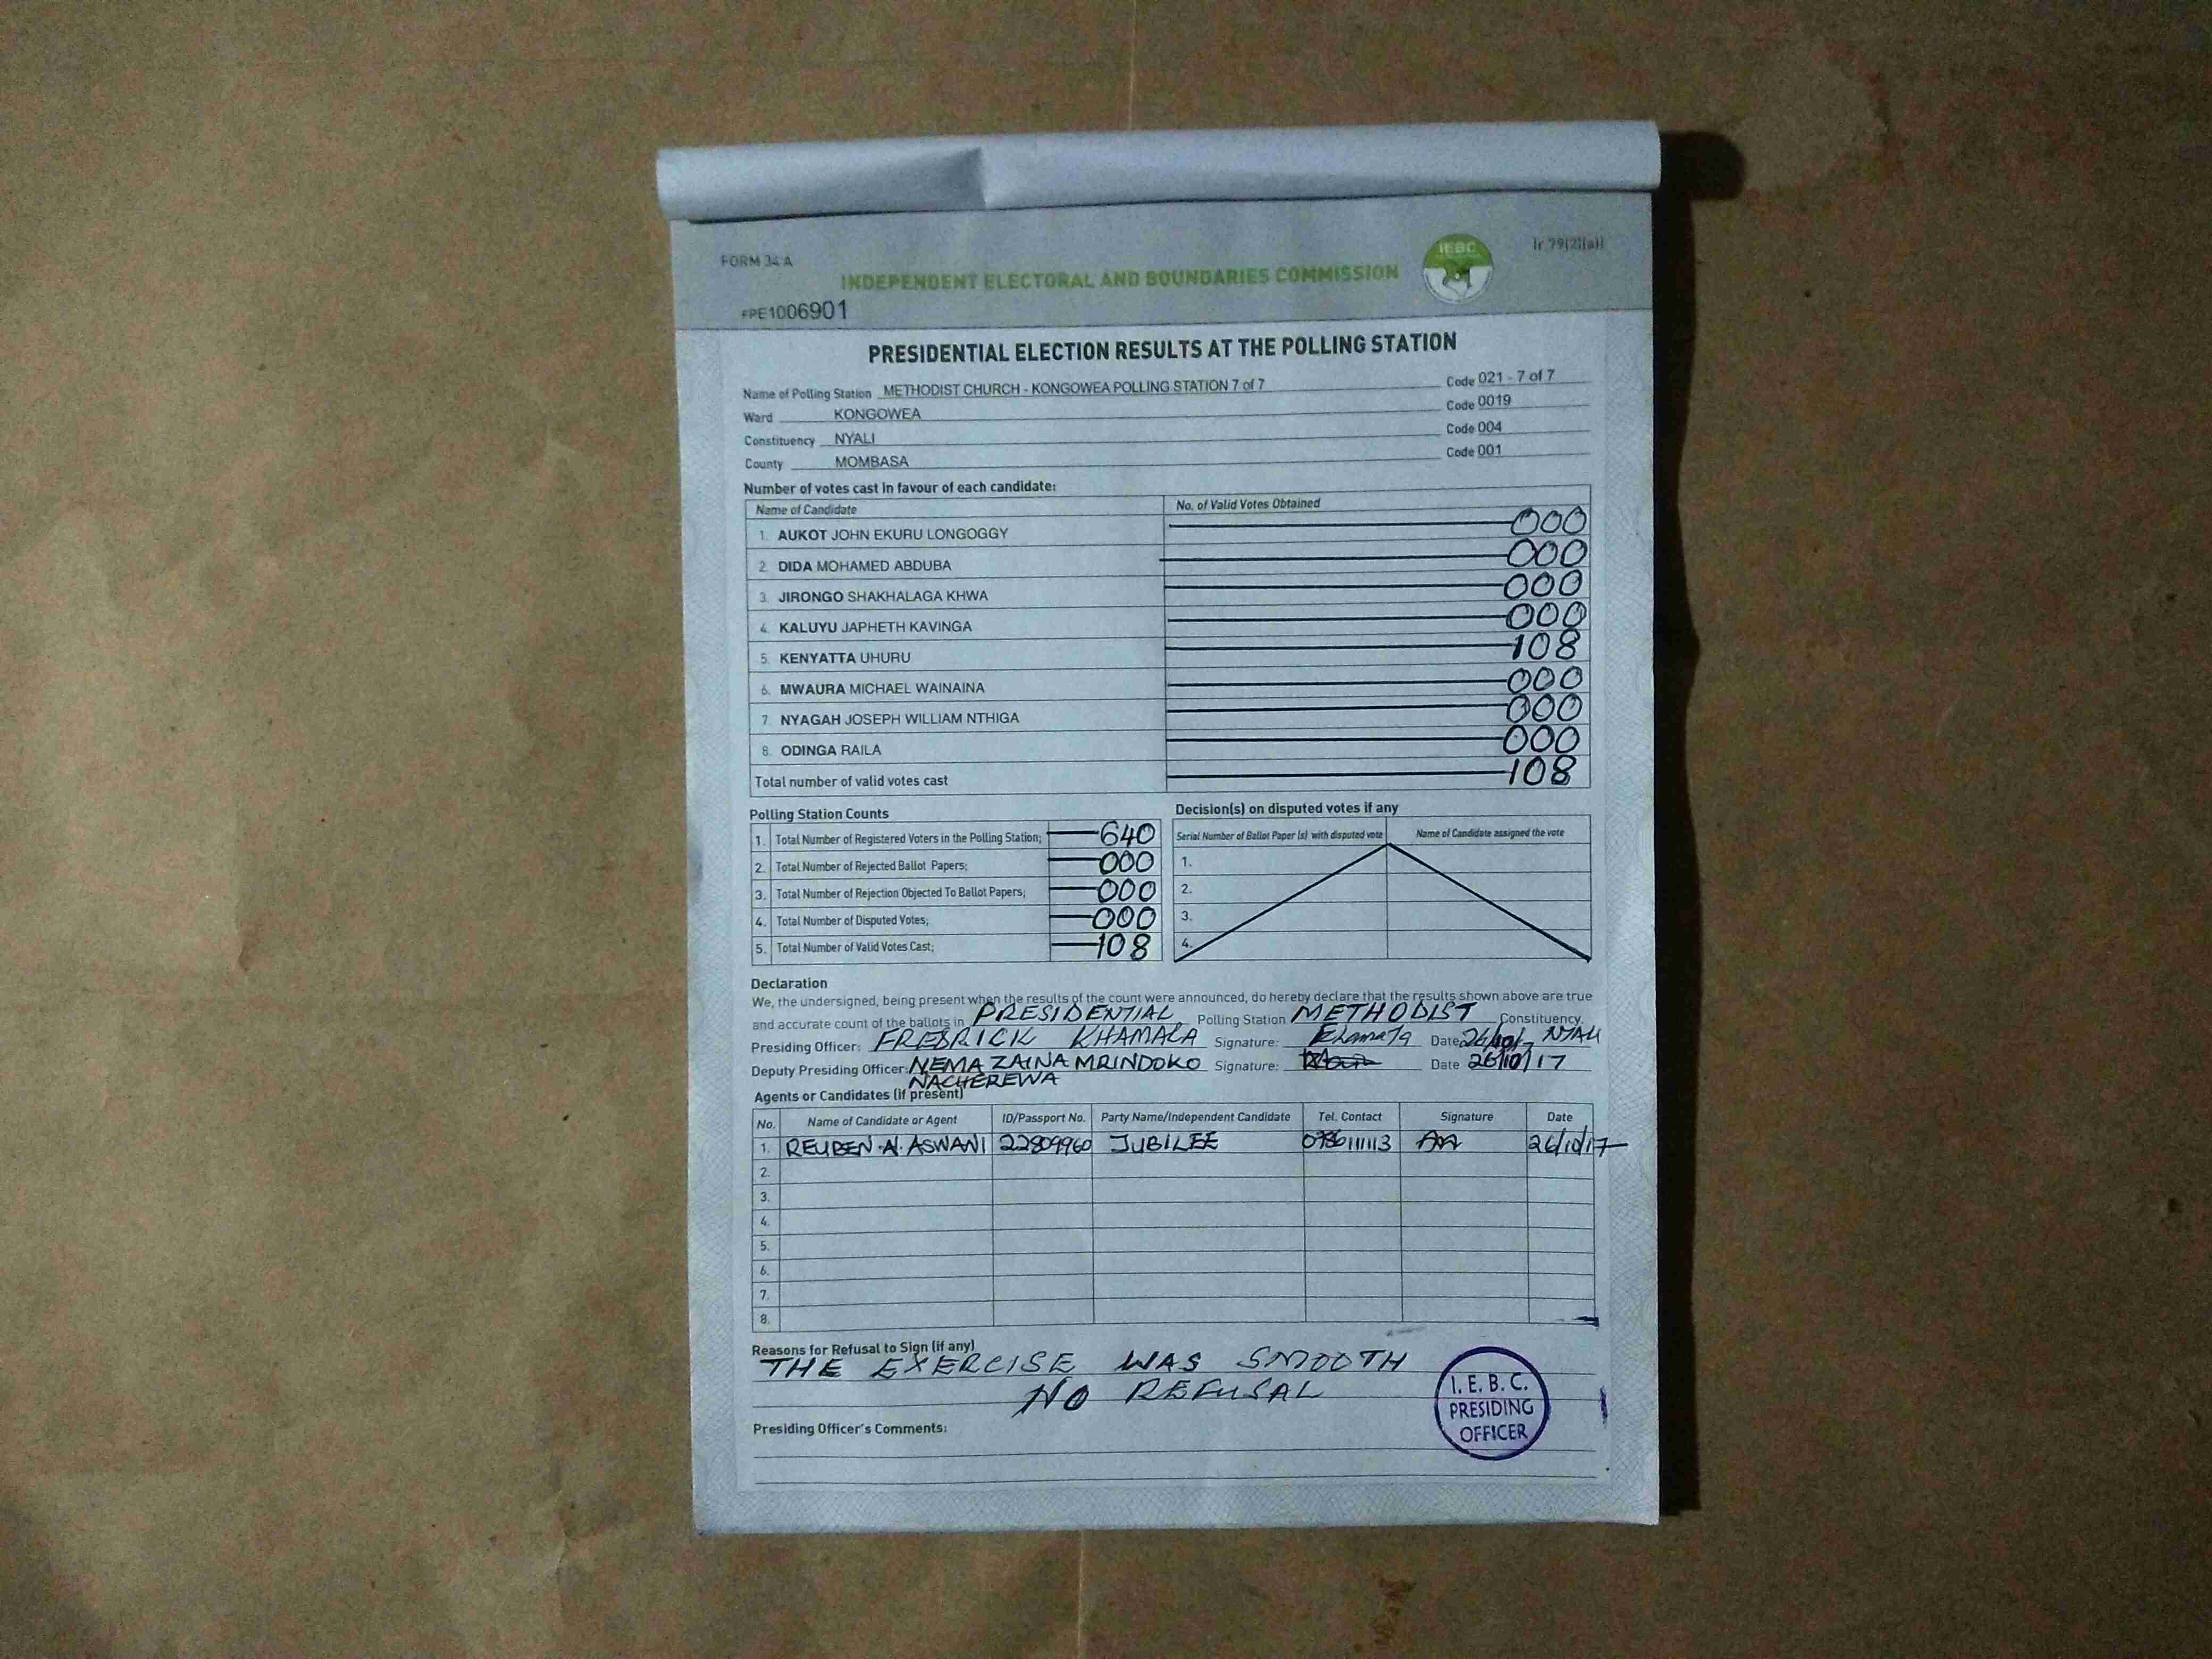 FORM 34 A
IEBC
[r 79(2)(a)]
INDEPENDENT ELECTORAL AND BOUNDARIES COMMISSION
FPE1006901
PRESIDENTIAL ELECTION RESULTS AT THE POLLING STATION
Name of Polling Station METHODIST CHURCH - KONGOWEA POLLING STATION 7 of 7 Code 021 - 7 of 7
Ward KONGOWEA Code 0019
Constituency NYALI Code 004
County MOMBASA Code 001
Number of votes cast in favour of each candidate:
Name of Candidate No. of Valid Votes Obtained
1. AUKOT JOHN EKURU LONGOGGY 000
2. DIDA MOHAMED ABDUBA 000
3. JIRONGO SHAKHALAGA KHWA 000
4. KALUYU JAPHETH KAVINGA 000
5. KENYATTA UHURU 108
6. MWAURA MICHAEL WAINAINA 000
7. NYAGAH JOSEPH WILLIAM NTHIGA 000
8. ODINGA RAILA 000
Total number of valid votes cast 108
Polling Station Counts
1. Total Number of Registered Voters in the Polling Station; 640
2. Total Number of Rejected Ballot Papers; 000
3. Total Number of Rejection Objected To Ballot Papers; 000
4. Total Number of Disputed Votes; 000
5. Total Number of Valid Votes Cast; 108
Decision(s) on disputed votes if any
Serial Number of Ballot Paper (s) with disputed vote Name of Candidate assigned the vote
1.
2.
3.
4.
Declaration
We, the undersigned, being present when the results of the count were announced, do hereby declare that the results shown above are true
and accurate count of the ballots in PRESIDENTIAL Polling Station METHODIST Constituency.
Presiding Officer: FREDRICK KHAMALA Signature: Date NYALI
Deputy Presiding Officer: NEMA ZAINA MRINDOKO Signature: Date 26/10/17
NACHEREWA
Agents or Candidates (if present)
No. Name of Candidate or Agent ID/Passport No. Party Name/Independent Candidate Tel. Contact Signature Date
1. REUBEN A. ASWANI 22809960 JUBILEE 26/10/17
2.
3.
4.
5.
6.
7.
8.
Reasons for Refusal to Sign (if any)
THE EXERCISE WAS SMOOTH
NO REFUSAL
I. E. B. C.
PRESIDING
OFFICER
Presiding Officer's Comments: